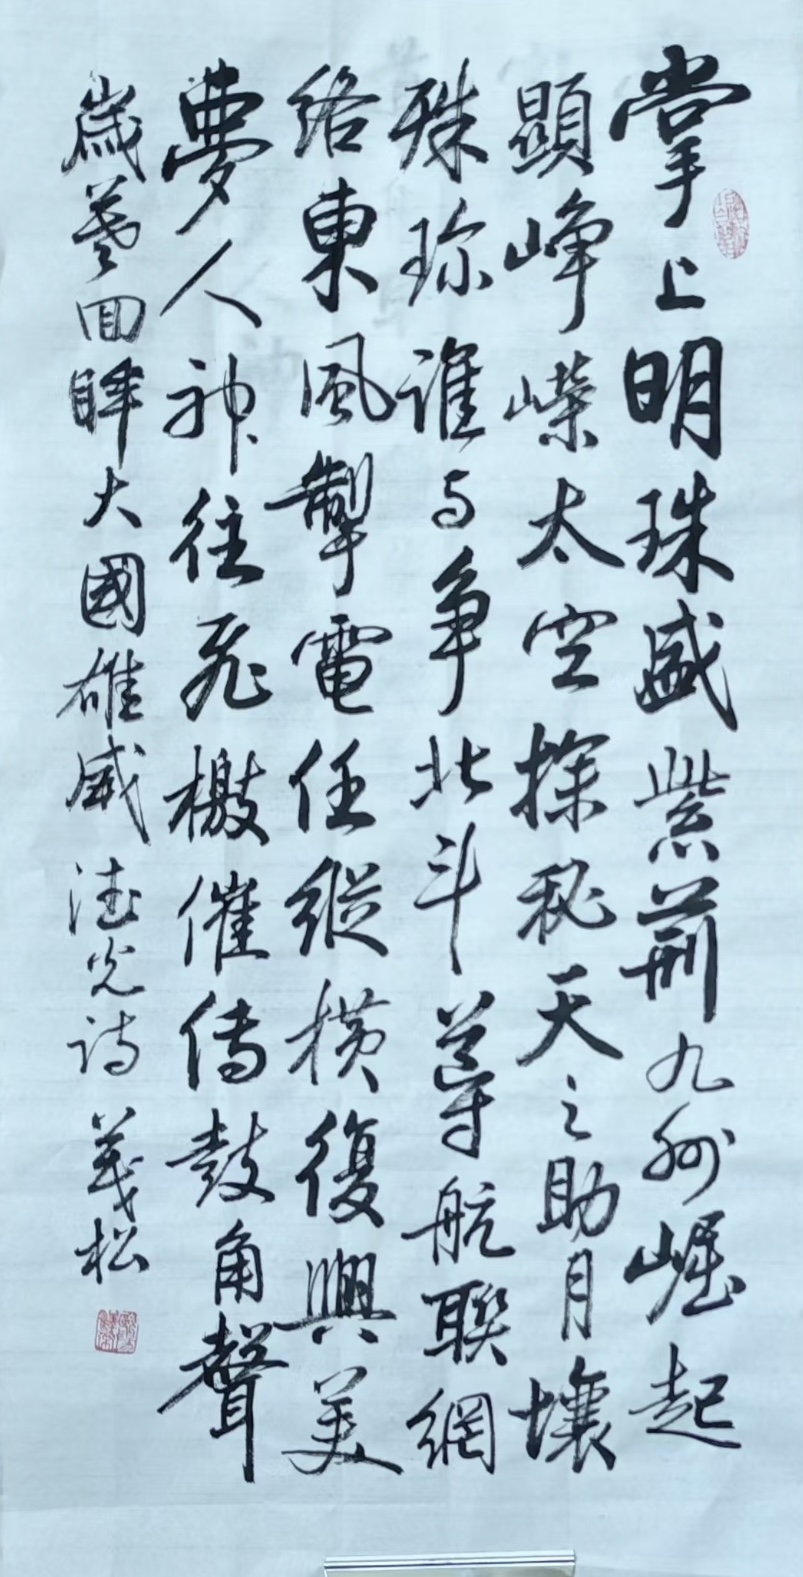 掌上明珠盛紫荊九州崛起
顯崢嶸太空探秘天之助月壤
殊珍誰与爭北斗導航聯網
络東風掣電任縱橫復興美
夢人神往飛檄催傳鼓角聲
歲暮回眸大國雄威 德光詩 義松